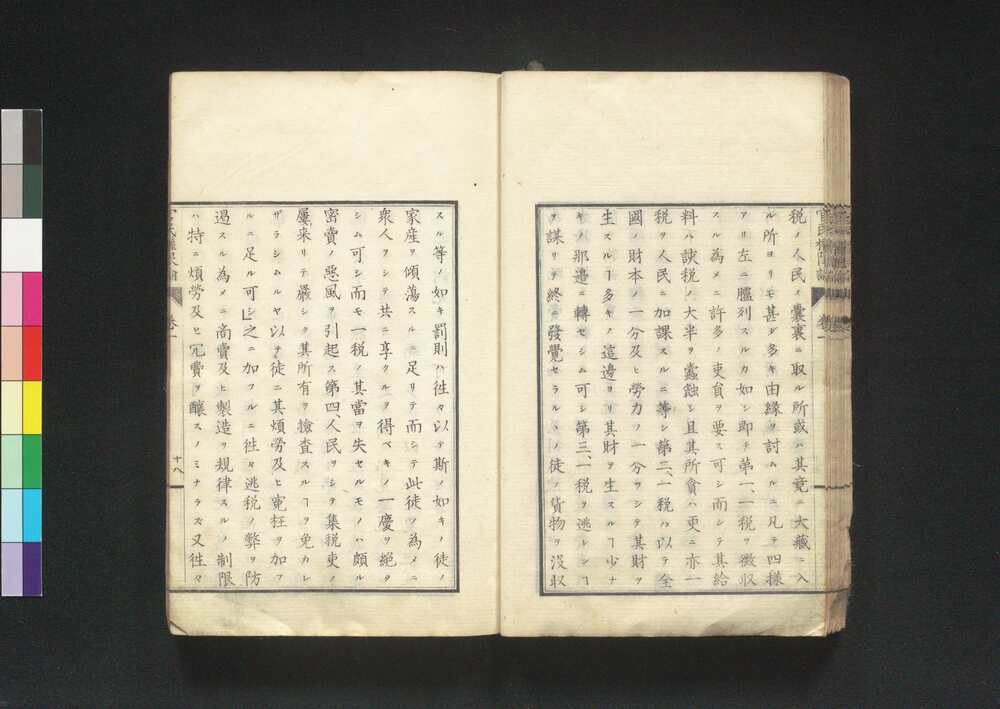 税ノ人民ノ囊裏ニ取ル所或ハ其竟ニ大藏ニ入
ル所ヨリモ甚ダ多キ由縁ヲ討ムルニ凡テ四樣
アリ左ニ臚列スルカ如シ即チ第一、一税ヲ徴収
スル為メニ許多ノ吏貟ヲ要ス可シ而シテ其給
料ハ該税ノ大半ヲ蠧蝕シ且其所貪ハ更ニ亦一
税ヲ人民ニ加課スルニ等シ第二、一税ハ以テ全
國ノ財本ノ一分及ヒ勞力ノ一分ヲシテ其財ヲ
生スルヿ多キノ這邊ヨリ其財ヲ生スルヿ少ナ
キノ那邊ニ轉セシム可シ第三、一税ヲ逃レンヿ
ヲ謀リテ終ニ發覺セラルヽノ徒ノ貨物ヲ沒収
スル等ノ如キ罰則ハ徃々以テ斯ノ如キノ徒ノ
家産ヲ傾蕩スルニ足リテ而シテ此徒ノ為メニ
衆人ヲシテ共ニ享クルヲ得ベキノ一慶ヲ絶タ
シム可シ而モ一税ノ其當ヲ失セルモノハ頗ル
密賣ノ惡風ヲ引起ス第四、人民ヲシテ集税吏ノ
屢來リテ嚴シク其所有ヲ撿査スルヿヲ免カレ
ザラシムルヤ以テ徒ニ其煩勞及ヒ寃枉ヲ加フ
ルニ足ル可シ之ニ加フルニ徃々逃税ノ弊ヲ防
遏スル為メニ商賣及ヒ製造ヲ規律スルノ制限
ハ特ニ煩勞及ヒ冗費ヲ釀スノミナラス又徃々
十八